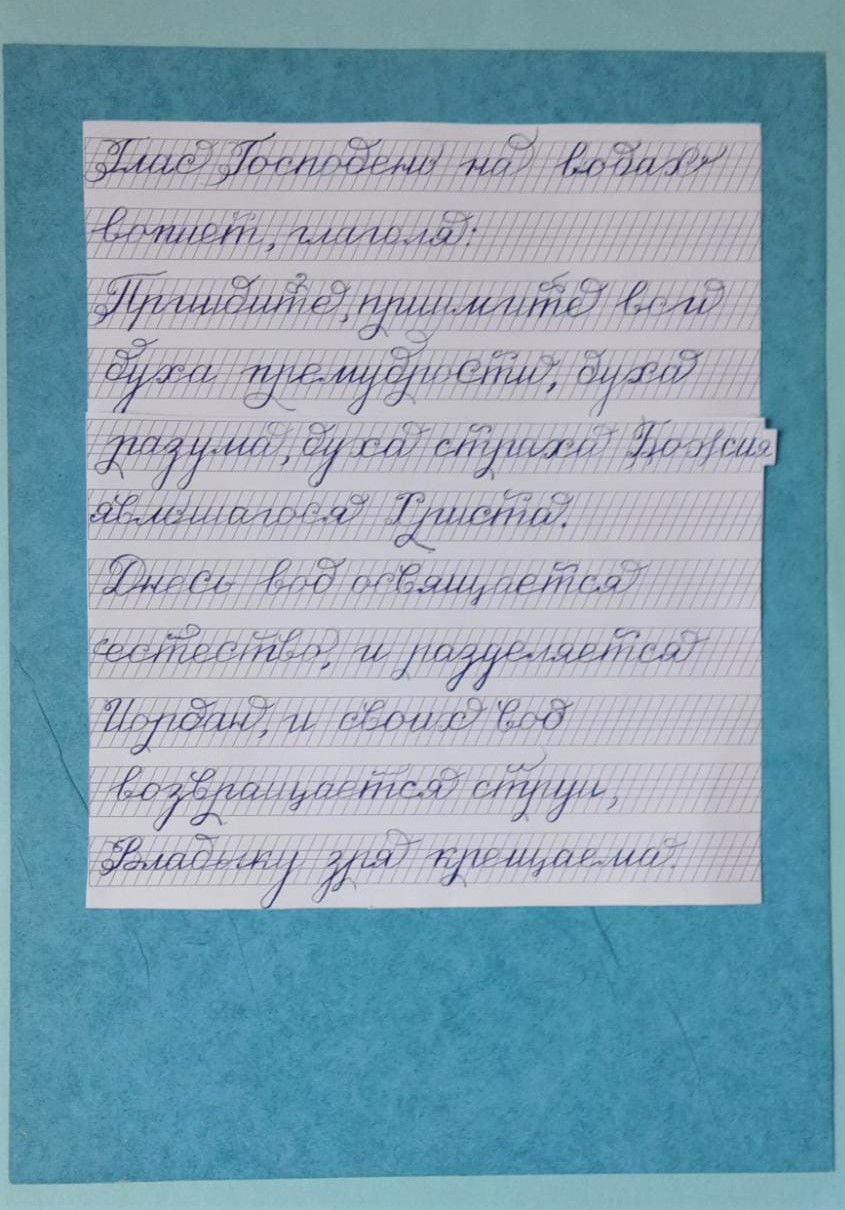 Глас Господень на водах
вопиет, глаголя:
Приидите, приимите вси
духа премудрости, духа
разума, духа страха Божия
явльшагося Христа.
Днесь вод освящается
естество, и разделяется
Иордан, и своих вод
возвращается струи,
Владыку зря крещаема.